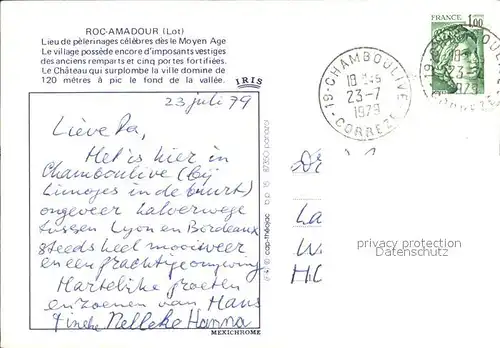 ROC-AMADOUR (Lot)
Lieu de pèlerinages célèbres dès le Moyen Age
Le village possède encore d'imposants vestiges
des anciens remparts et cinq portes fortifiées.
Le Château qui surplombe la ville domine de
120 mètres à pic le fond de la vallée.
IRIS
23 juli 79
Lieve Pa,
Het is hier in
Chamboulive (bij
Limoges in de buurt)
ongeveer halverwege
tussen Lyon en Bordeaux
steeds heel mooi weer
en een prachtige omgeving
Hartelijke groeten
en zoenen van Hans
Tineke Nelleke Hanna
MEXICHROME
cap-théojac bp 15 87350 panazol
FRANCE 1,00
19-CHAMBOULIVE
23-7
1979
CORREZE
19-CHAMBOULIVE
23-7
1979
CORREZE
privacy protection
Datenschutz